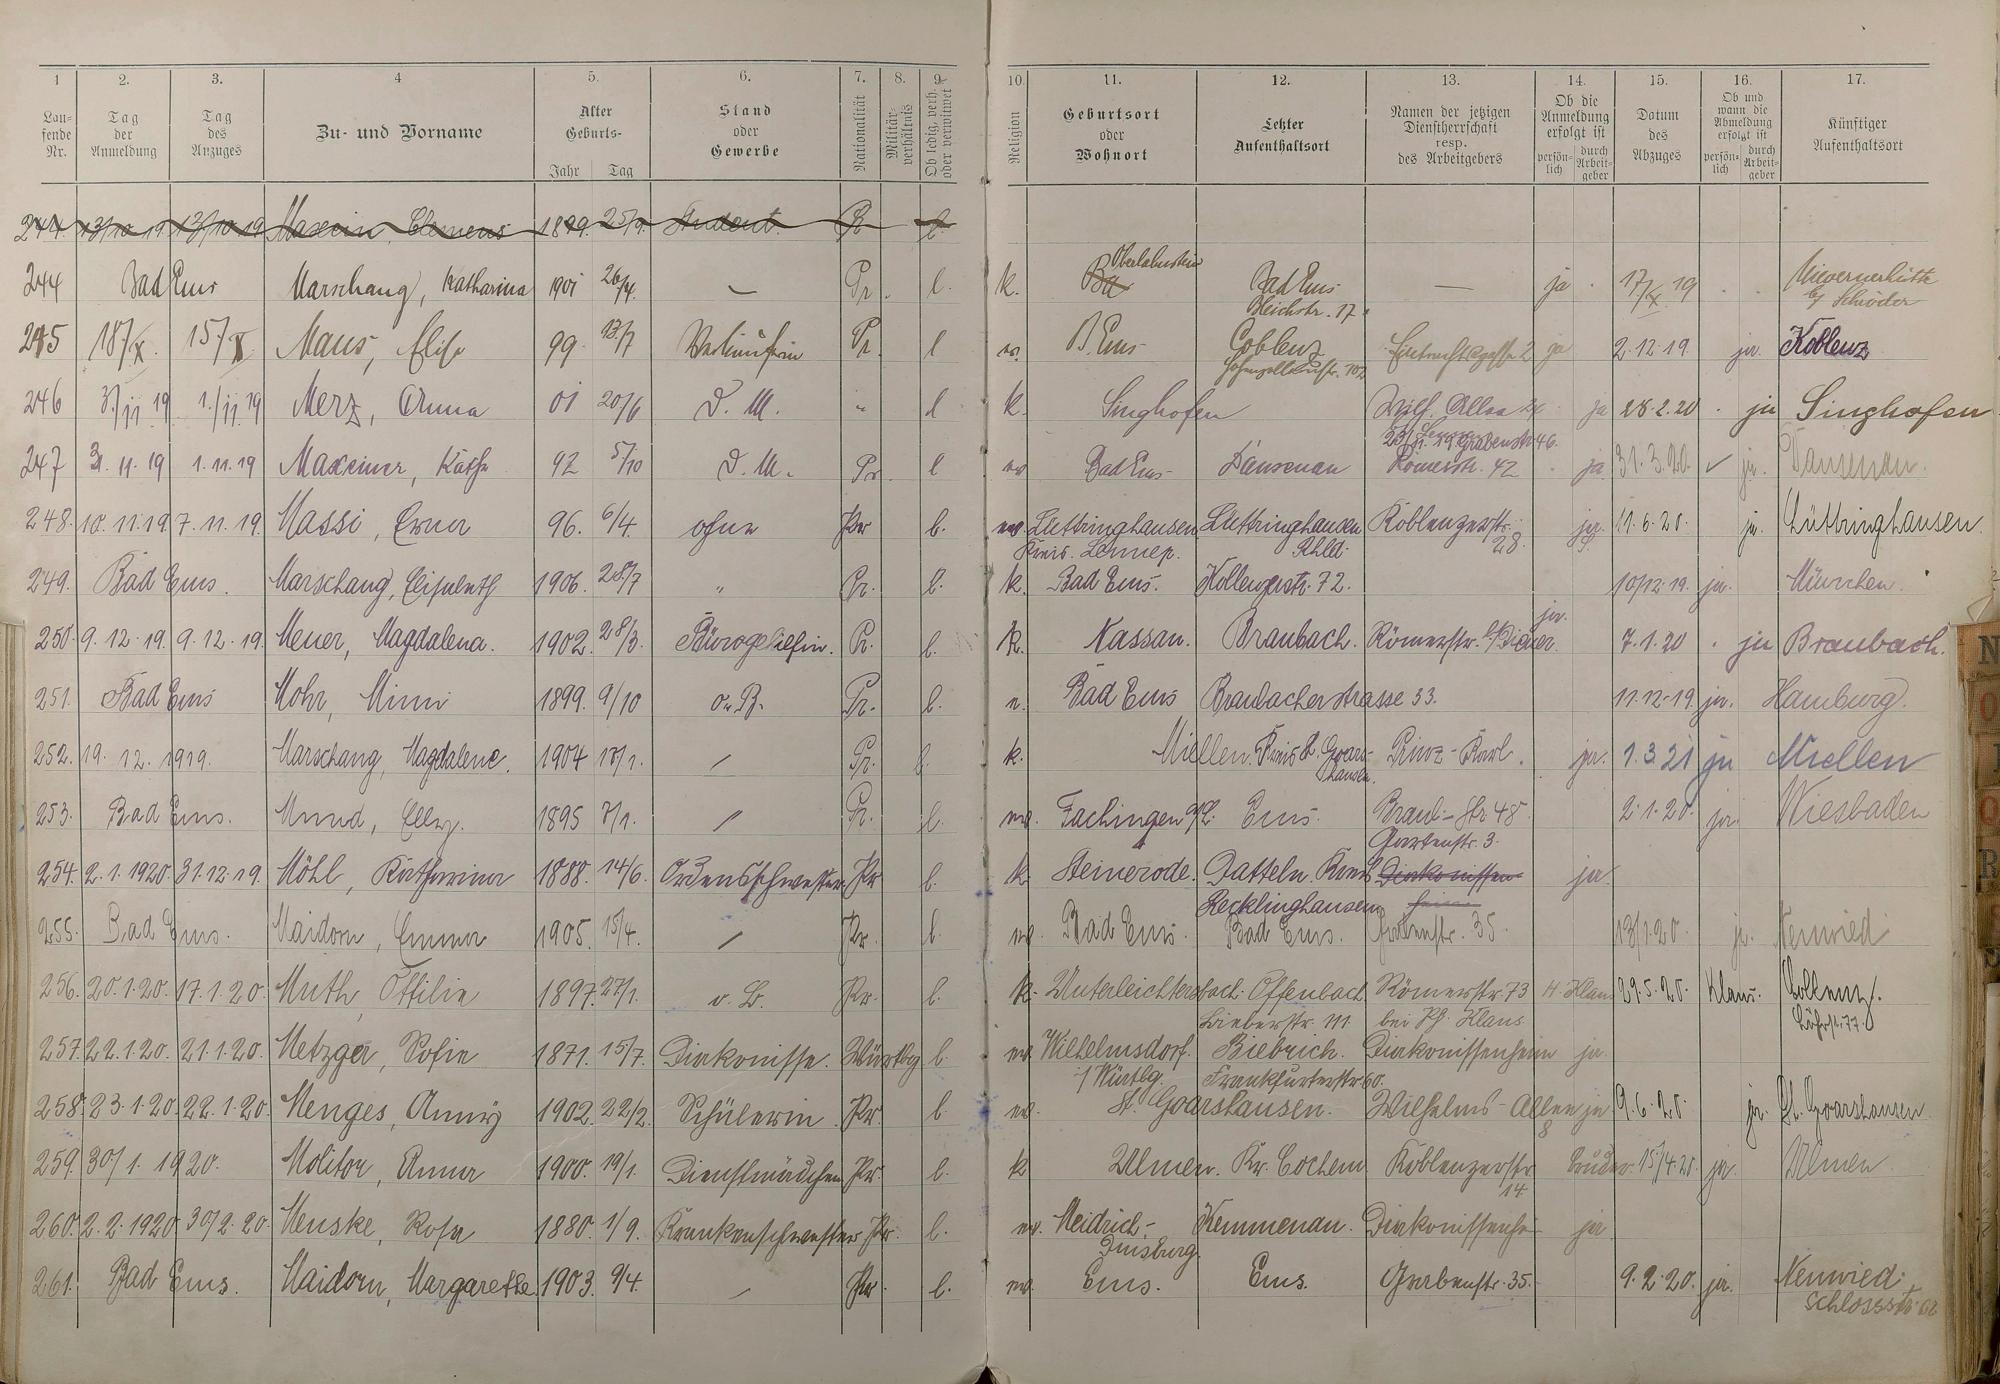 1 2. 3. 4 5. 6. 7. 8. 9. 10. 11. 12. 13. 14. 15. 16. 17.
Laufende Nr. Tag der Anmeldung Tag des Anzuges Zu- und Vorname Alter Geburts- Jahr Tag Stand oder Gewerbe Nationalität Militärverhältnis Ob ledig, verh. oder verwitwet Religion Geburtsort oder Wohnort Letzter Aufenthaltsort Namen der jetzigen Dienstherrschaft resp. des Arbeitgebers Ob die Anmeldung erfolgt ist persönlich durch Arbeitgeber Datum des Abzuges Ob und wann die Abmeldung erfolgt ist persönlich durch Arbeitgeber Künftiger Aufenthaltsort
244. 13/10 19 13/10 19 Maxein, Clemens 1899. 25/9. Student. Pr l.
244 Bad Ems Marschang, Katharina 1901 26/4. — Pr. l. k. Oberlahnstein Bad Ems Bleichstr. 17 — ja 17/X 19 Nievernerhütte b/ Schröder
245 18/X. 15/X Maus, Elise 99 13/7 Verkäuferin Pr. l ev. B. Ems Coblenz 2 ja 2.12.19. ja. Koblenz
246 3./11 19 1./11 19 Merz, Anna 01 20/6 D. M. " l k. Singhofen Wilh. Allee ja 28.2.20 ja Singhofen
247 3.11.19 1.11.19 Maxeiner, Käthe 92 5/10 D. M. Pr l ev Bad Ems Dausenau Grabenstr 46. Römerstr. 42 ja 31.3.20. ja. Dausenau.
248. 10.11.19 7.11.19. Massi, Erna 96. 6/4. ohne Pr l. ev. Lüttringhausen Kreis. Lennep. Lüttringhausen Rhld. Koblenzerstr. 28. ja. 11.6.20. ja. Lüttringhausen.
249. Bad Ems. Marschang, Elisabeth 1906. 28/7 " Pr. l. k. Bad Ems. Koblenzerstr. 72. 10/12.19. ja. München.
250. 9.12.19. 9.12.19. Meuer, Magdalena. 1902. 28/3. Bürogehilfin. Pr. l. k. Nassau. Braubach. Römerstr. ja. 7.1.20 ja Braubach.
251. Bad Ems Mohr, Minni 1899. 9/10 o. B. Pr. l. Bad Ems Braubacherstrasse 33. 11.12.19. ja. Hamburg.
252. 19. 12. 1919. Marschang, Magdalene. 1904 / Pr. l. k. Miellen. Kreis St. Goarshausen. Prinz-Karl. ja. 1.3.21 ja Miellen
253. Bad Ems. Mund, Elly. 1895 7/1. / Pr. l. ev. Fachingen a/L. Ems. Braub-Str. 48. 2.1.20. ja. Wiesbaden
254. 2.1.1920. 31.12.19. Möhl, Katharina 1888. 14/6. Ordensschwester Pr l. k. Steinerode. Datteln. Kreis Recklinghausen Gartenstr. 3. Diakonissen ja.
255. Bad Ems. Maidorn, Emma 1905. 15/4. / Pr. l. ev. Bad Ems. Bad Ems. Grabenstr. 35. 13/1.20. ja. Neuwied
256. 20.1.20. 17.1.20. Muth, Ottilie 1897. 27/1. o. B. Pr. l. k. Unterleichtersbach. Offenbach Bieberstr. 111 Römerstr. 73 bei Ph. Klaus H. Klaus 29.5.20. Klaus. Coblenz. Löhrstr. 77.
257. 22.1.20. 21.1.20. Metzger, Sofie 1871. 15/7. Diakonisse. Württbg l. ev. Wilhelmsdorf. i/ Würtbg. Biebrich. Frankfurterstr. 60. Diakonissenheim ja.
258. 23.1.20. 22.1.20. Menges, Anny 1902. 22/2. Schülerin Pr. l. ev. St. Goarshausen. Wilhelms-Allee 8 ja 9.6.20. ja. St. Goarshausen
259. 30/1. 1920. Molitor, Anna 1900. 19/1. Dienstmädchen Pr. l. k Ulmen. Kr. Cochem Koblenzerstr 14 Bruder. 15/4.20. ja. Ulmen
260. 2.2.1920. 30/2.20. Menske, Rosa 1880. 1/9. Krankenschwester Pr. l. ev. Meidrich-Duisburg. Kemmenau. ja
261. Bad Ems. Maidorn, Margarethe 1903. 9/4. / Pr. l. ev. Ems. Ems. Grabenstr. 35. 9.2.20. ja. Neuwied. Schlossstr.
N
O
R